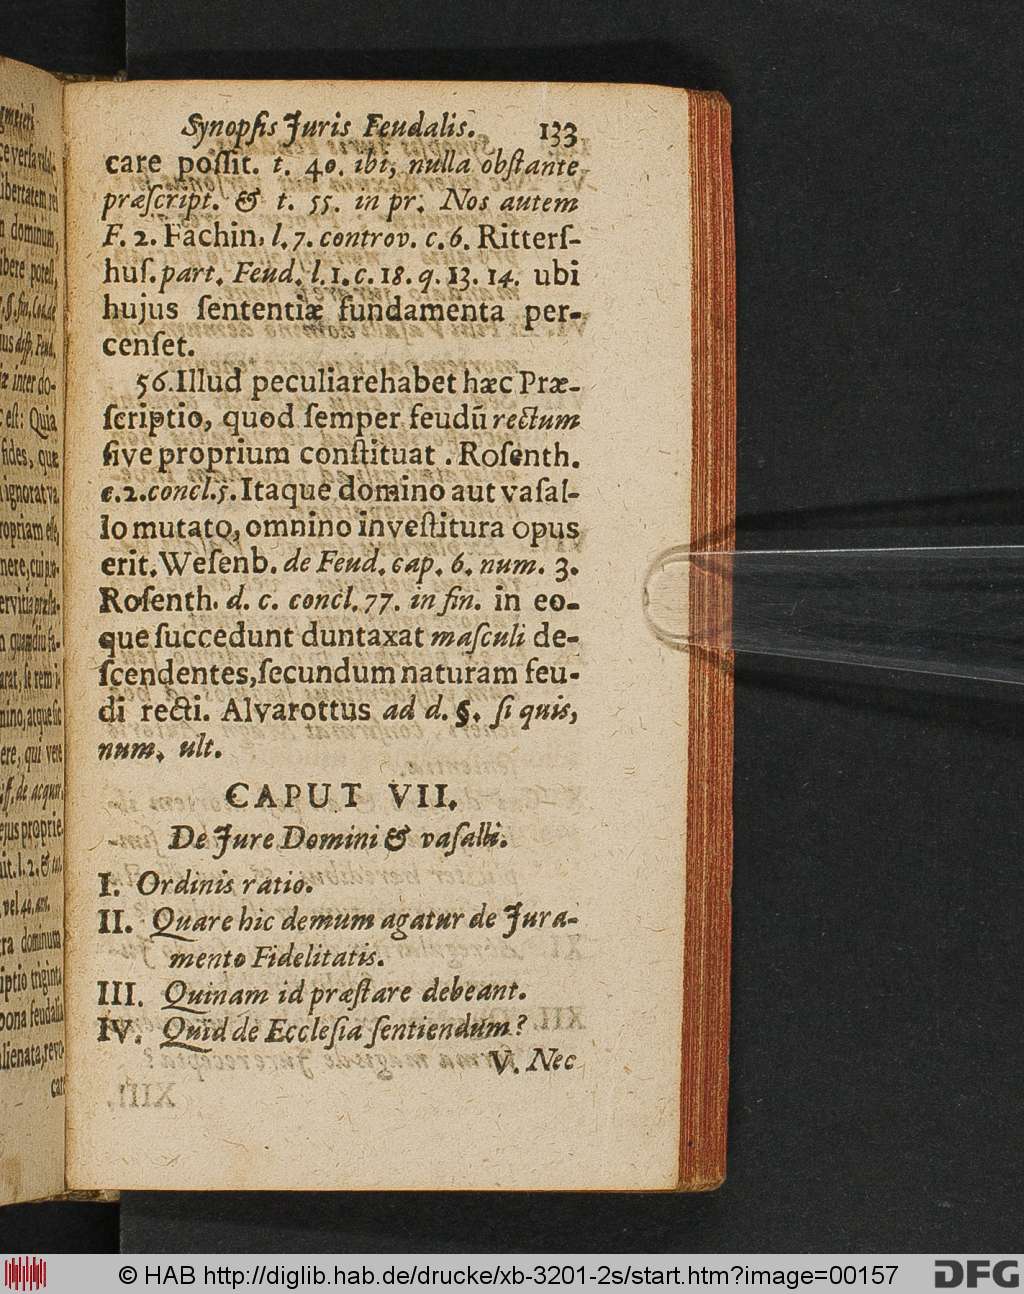 Synopſis Juris Feudalis. 133
care poſſit. t. 40. ibi, nulla obſtante
præſcript. & t. 55. in pr. Nos autem
F. 2. Fachin. l. 7. controv. c. 6. Ritterſ-
huſ. part. Feud. l. 1. c. 18. q. 13. 14. ubi
hujus ſententiæ fundamenta per-
cenſet.
56. Illud peculiare habet hæc Præ-
ſcriptio, quod ſemper feudū rectum
ſive proprium conſtituat. Roſenth.
c. 2. concl. 5. Itaque domino aut vaſal-
lo mutato, omnino inveſtitura opus
erit. Weſenb. de Feud. cap. 6. num. 3.
Roſenth. d. c. concl. 77. in fin. in eo-
que ſuccedunt duntaxat maſculi de-
ſcendentes, ſecundum naturam feu-
di recti. Alvarottus ad d. §. ſi quis,
num. ult.
CAPUT VII.
De Jure Domini & vaſalli.
I. Ordinis ratio.
II. Quare hic demum agatur de Jura-
mento Fidelitatis.
III. Quinam id præſtare debeant.
IV. Quid de Eccleſia ſentiendum?
V. Nec
© HAB http://diglib.hab.de/drucke/xb-3201-2s/start.htm?image=00157
DFG